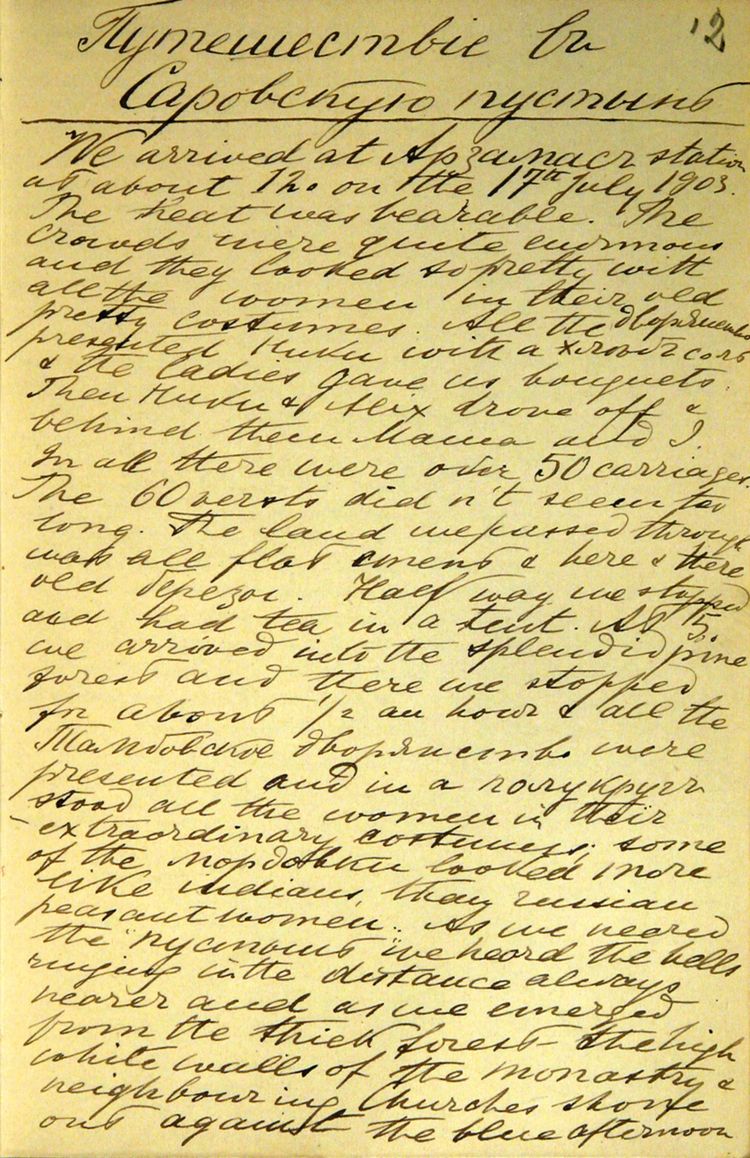 12
Путешествіе въ
Саровскую пустынь
We arrived at Арзамасъ station
at about 12. on the 17th July 1903.
The heat was bearable. The
crowds were quite enormous
and they looked so pretty with
all the women in their old
pretty costumes. All the дворянство
presented Ники with a хлѣбъ соль
& the ladies gave us bouquets.
Then Ники & Alix drove off &
behind them Мама and I.
In all there were over 50 carriages.
The 60 versts did n't seem too
long. The land we passed through
was all flat & here & there
old березы. Half way we stopped
and had tea in a tent. At 5.
we arrived into the splendid pine
forest and there we stopped
for about 1/2 an hour & all the
Тамбовское дворянство were
presented and in a полукругъ
stood all the women in their
extraordinary costumes; some
of the мордовки looked more
like indians, than russian
peasant women. As we neared
the "пустынь" we heard the bells
ringing in the distance always
nearer and as we emerged
from the thick forest the high
white walls of the monastry &
neighbouring Churches shone
out against the blue afternoon